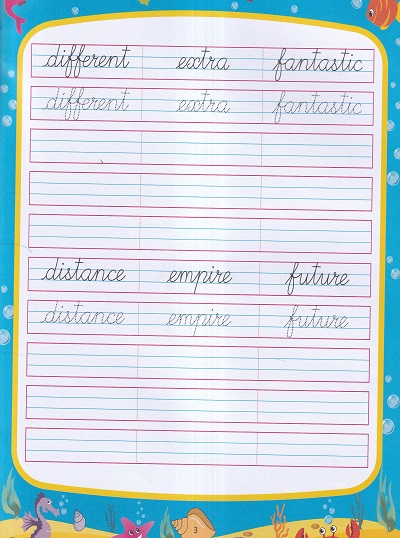 different extra fantastic
different extra fantastic
distance empire future
distance empire future
3